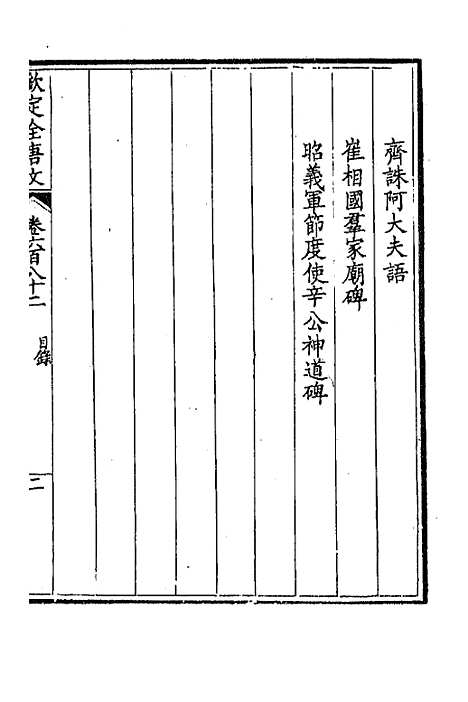 齊誅阿大夫語
崔相國羣家廟碑
昭義軍節度使辛公神道碑
欽定全唐文
卷六百八十二
目錄
二